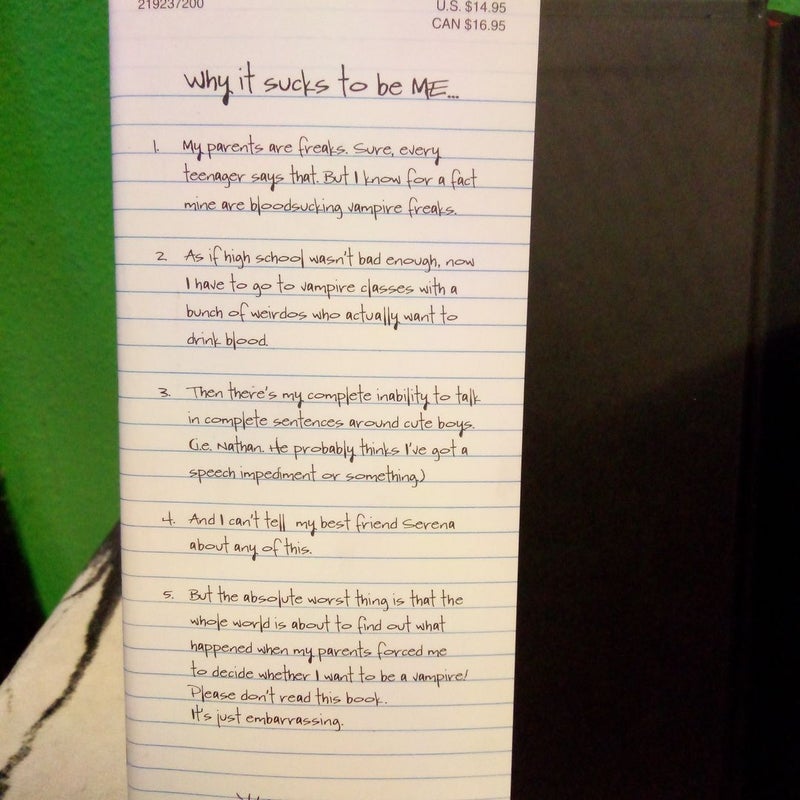 219237200
U.S. $14.95
CAN $16.95
Why it sucks to be ME...
1. My parents are freaks. Sure, every
teenager says that. But I know for a fact
mine are bloodsucking vampire freaks.
2. As if high school wasn't bad enough, now
I have to go to vampire classes with a
bunch of weirdos who actually want to
drink blood.
3. Then there's my complete inability to talk
in complete sentences around cute boys.
(i.e. Nathan. He probably thinks I've got a
speech impediment or something)
4. And I can't tell my best friend Serena
about any of this.
5. But the absolute worst thing is that the
whole world is about to find out what
happened when my parents forced me
to decide whether I want to be a vampire!
Please don't read this book.
It's just embarrassing.